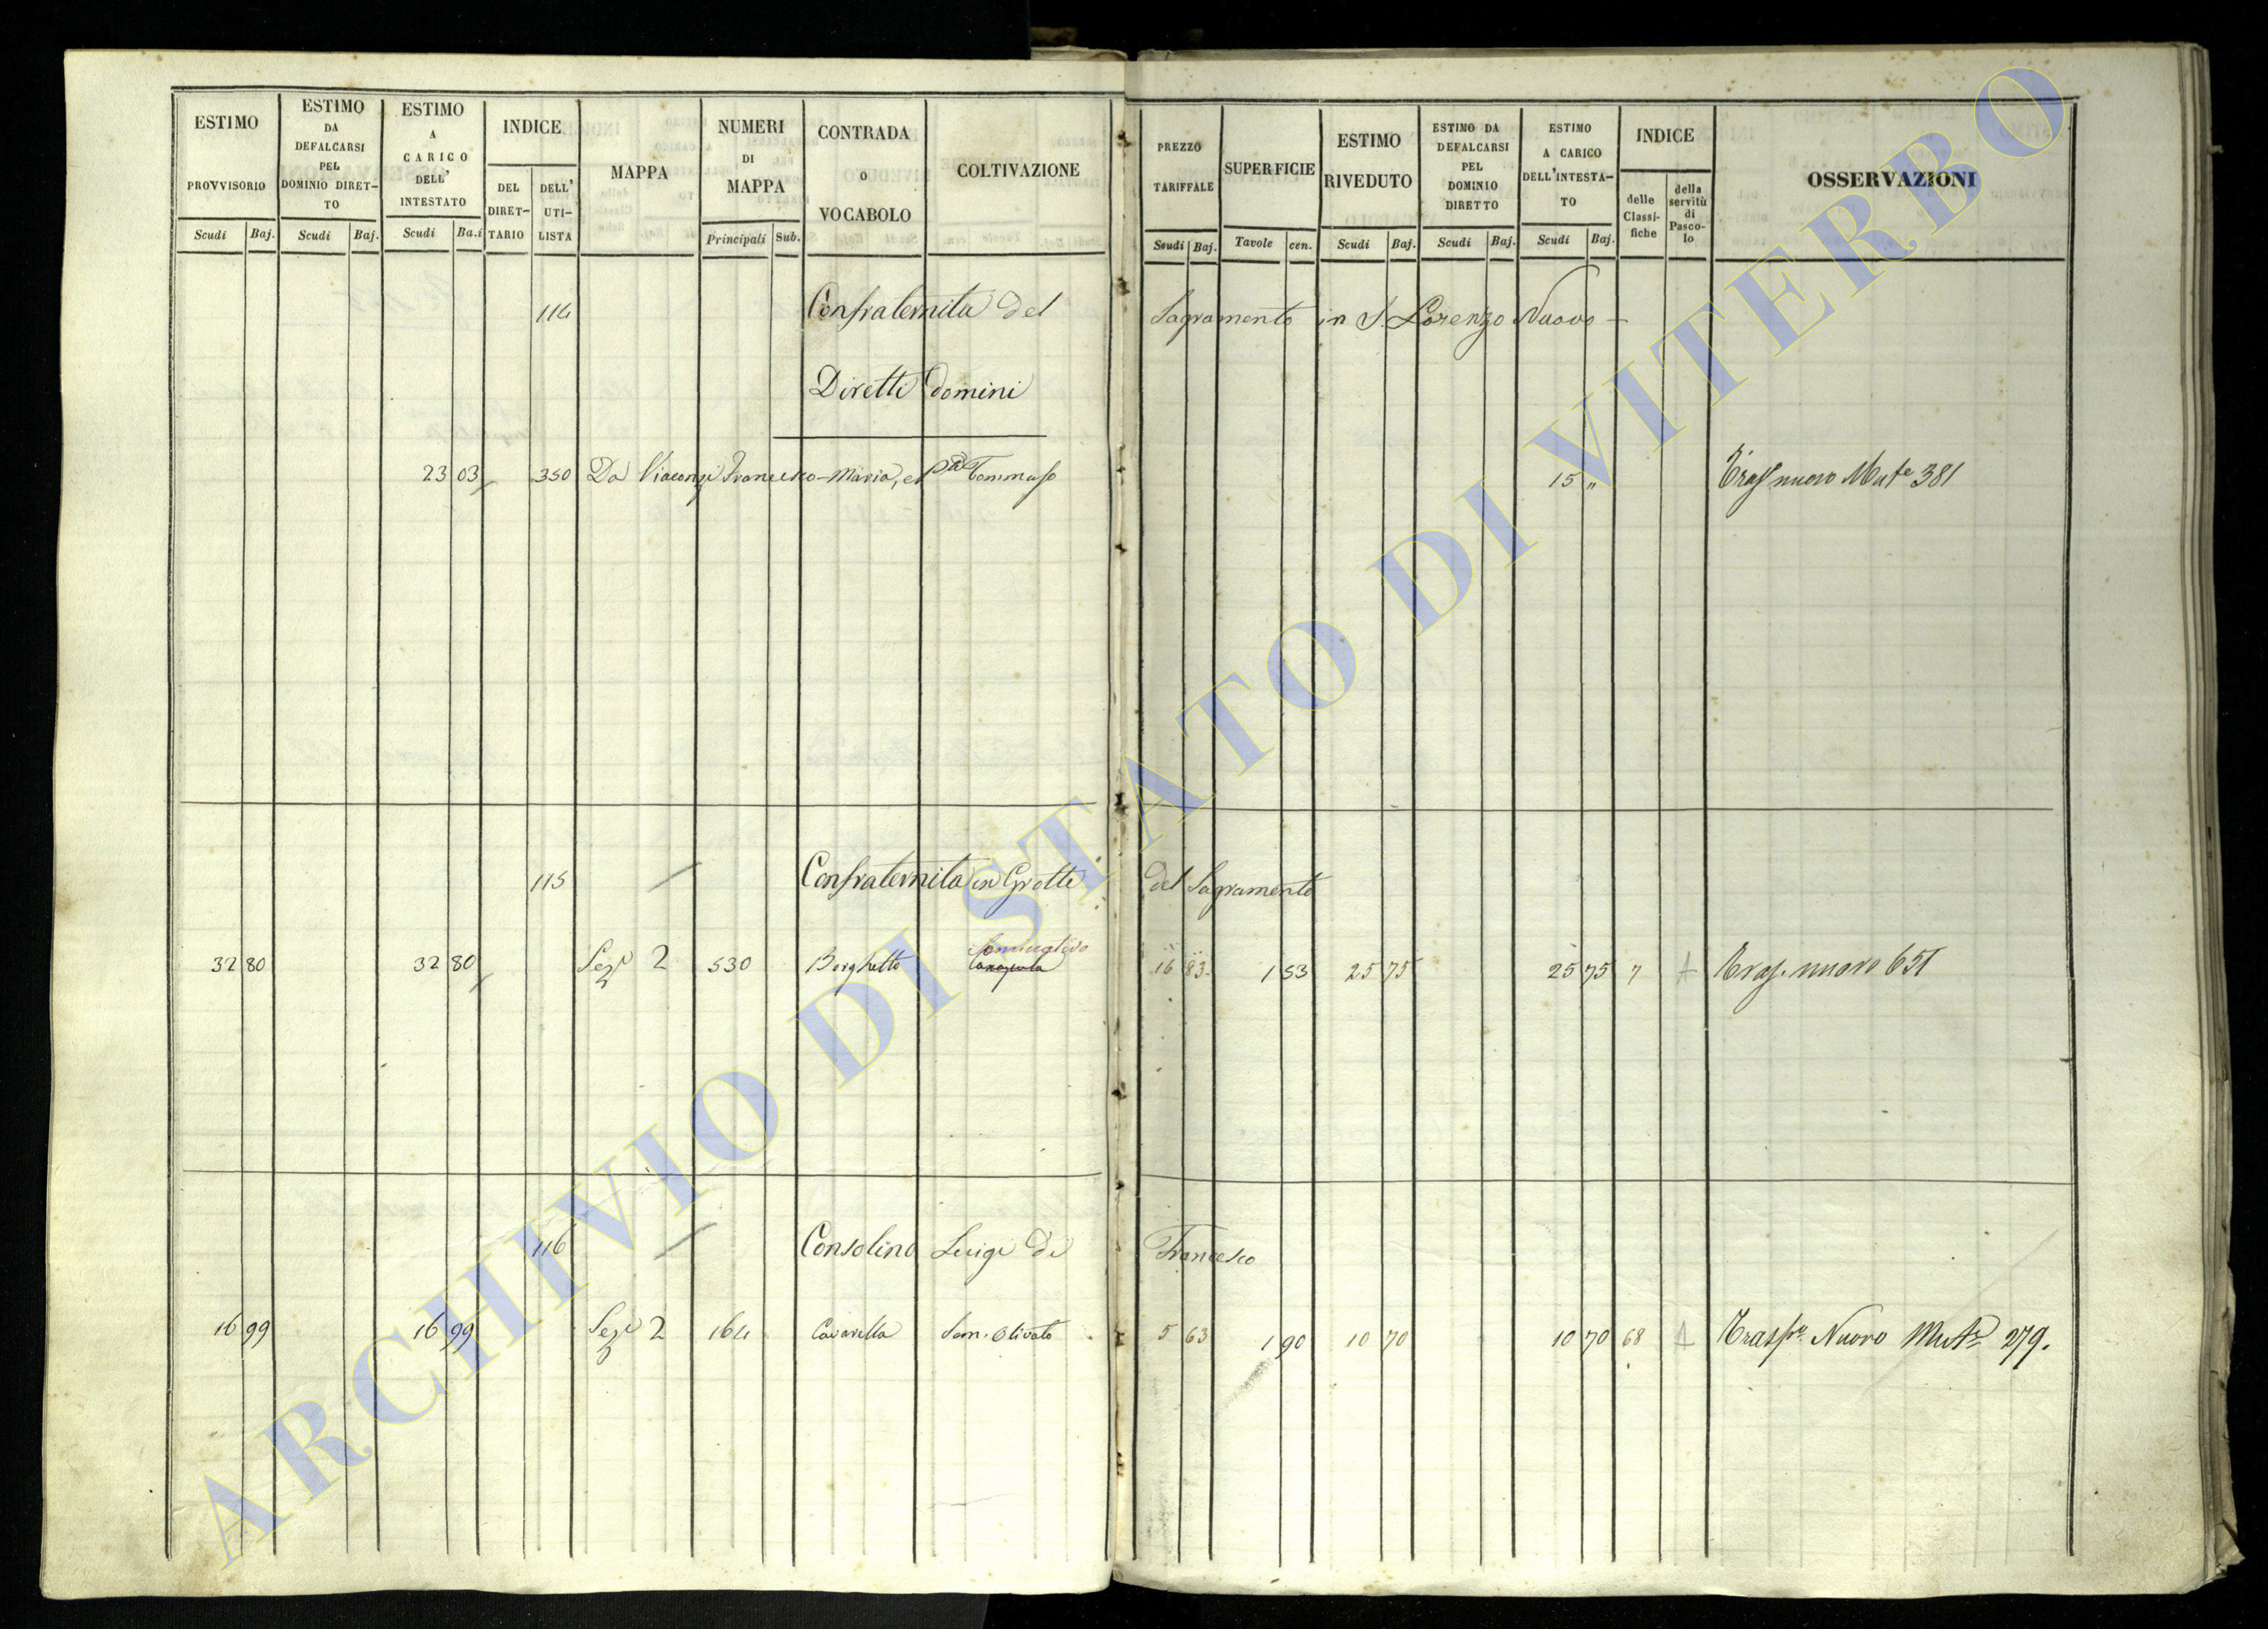 ESTIMO PROVVISORIO
Scudi Baj.
ESTIMO DA DEFALCARSI PEL DOMINIO DIRET-TO
Scudi Baj.
ESTIMO A CARICO DELL' INTESTATO
Scudi Ba.i
INDICE
DEL DIRET-TARIO
DELL' UTI-LISTA
MAPPA
NUMERI DI MAPPA
Principali Sub.
CONTRADA O VOCABOLO
COLTIVAZIONE
PREZZO TARIFFALE
Scudi Baj.
SUPERFICIE
Tavole cen.
ESTIMO RIVEDUTO
Scudi Baj.
ESTIMO DA DEFALCARSI PEL DOMINIO DIRETTO
Scudi Baj.
ESTIMO A CARICO DELL'INTESTA-TO
Scudi Baj.
INDICE
delle Classi-fiche
della servitù di Pasco-lo
OSSERVAZIONI
114 Confraternita del Sagramento in S. Lorenzo Nuovo
Diretti domini
23 03 350 Da Francesco-Maria, e Tommaso 15 " Trasp nuovo Mut.e 381
115 Confraternita in Grotte del Sagramento
32 80 32 80 Sez.e 2 530 Borghetto Seminativo 16 83 1 53 25 75 25 75 7 A Trasp. nuovo 651
116 Consolino Luigi di Francesco
16 99 16 99 Sez.e 2 164 Cavarella Sem. Olivato 5 63 1 90 10 70 10 70 68 1 Trasp.o Nuovo Mut.e 279.
ARCHIVIO DI STATO DI VITERBO